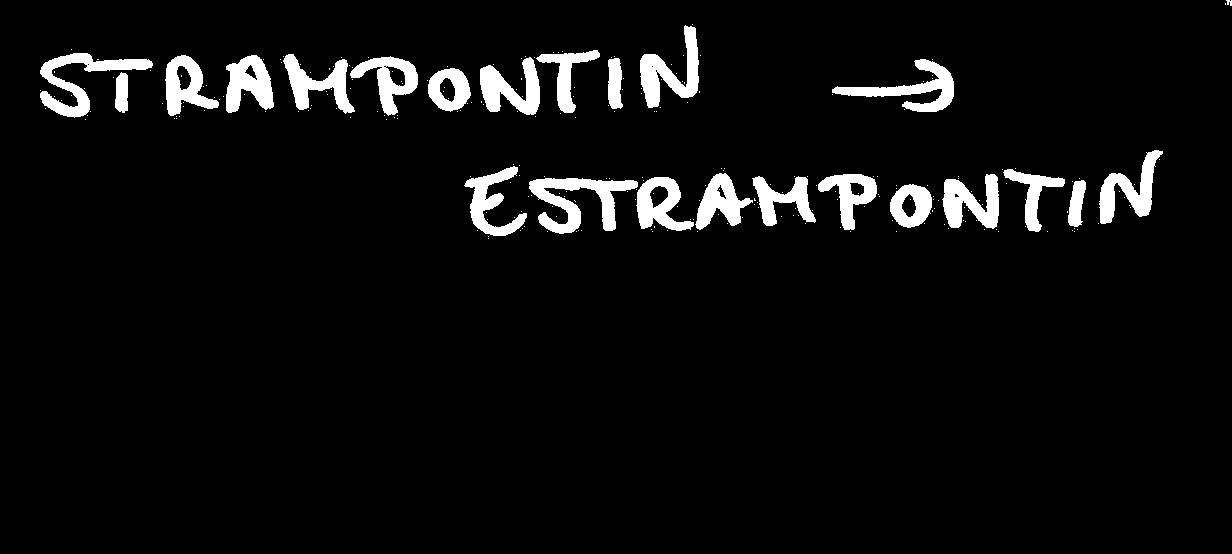 STRAMPONTIN →
ESTRAMPONTIN